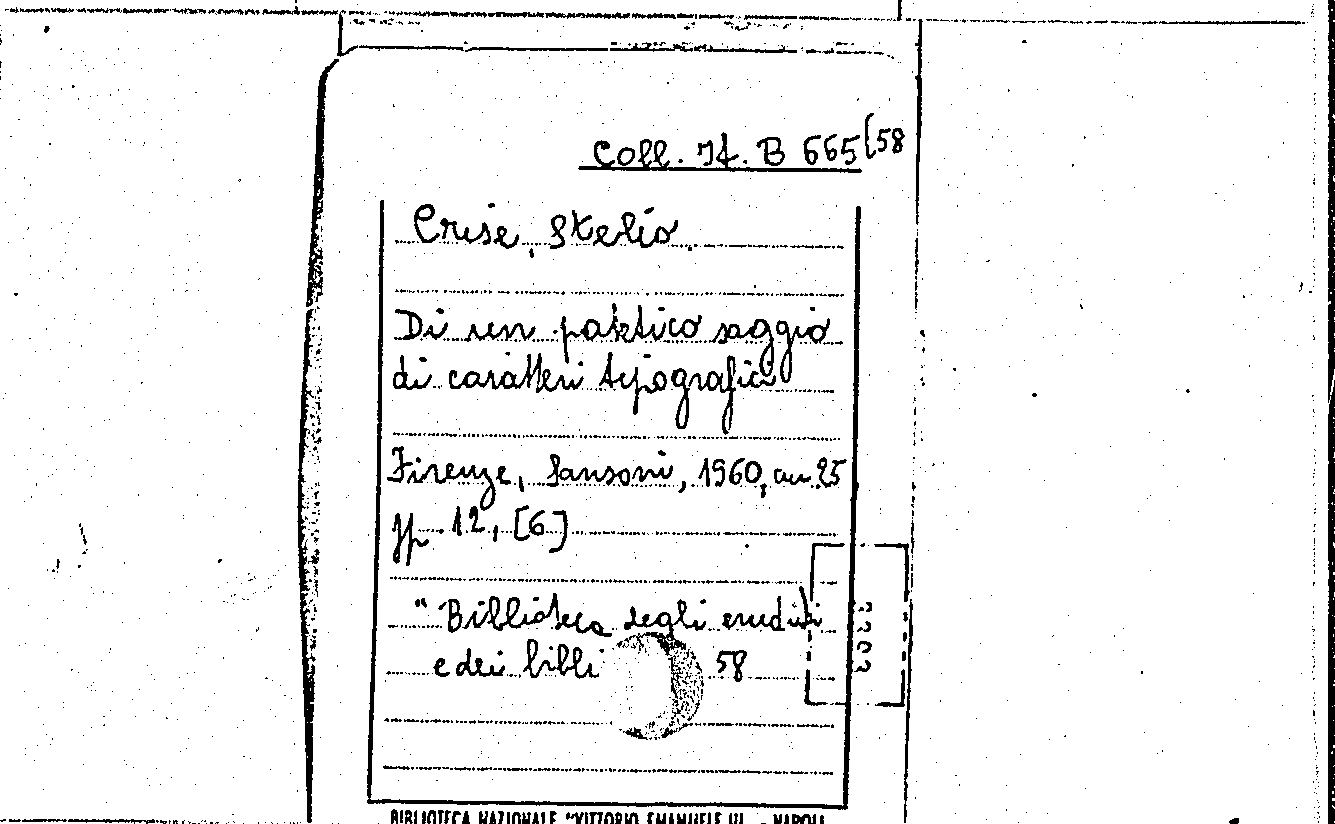 Coll. 74. B 665(58
Crise, Stelio.
Di un patetico saggio
di caratteri tipografici
Firenze, Sansoni, 1960, cm. 25
pp. 12, [6]
"Biblioteca degli eruditi
e dei bibli 58
BIBLIOTECA NAZIONALE "VITTORIO EMANUELE III - NAPOLI